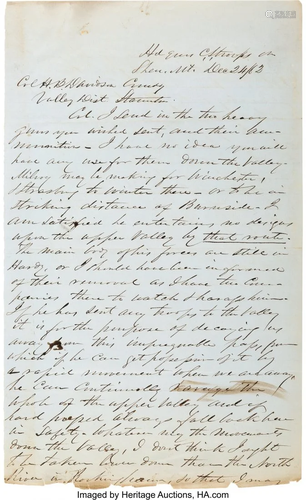 Hd qrs C. Troops on
Shen. Mt. Dec 24/62
Col H. B. Davidson Comdg
Valley Dist Staunton
Col. I send in the two heavy
guns you wished sent, and their am-
munition - I have no idea you will
have any use for them down the Valley.
Milroy may be making for Winchester,
& thereby to winter there - or to be in
striking distance of Burnside. I
am satisfied he entertains no designs
upon the upper Valley by that route.
The main body of his forces are still in
Hardy, or I should have been informed
of their removal as I have two Com-
panies there to watch & harass him -
If he has sent any troops to the Valley
it is for the purpose of decoying us
away from this impregnable gap, of
which if he can get possession of it by
a rapid movement when we are away
he can continually ravage the
whole of the upper Valley and if
hard pressed always fall back here
in safety. Whatever be the movements
down the Valley, I don't think I ought
to be taken down than the North
River in this place, so that I may
Imaged by Heritage Auctions, HA.com